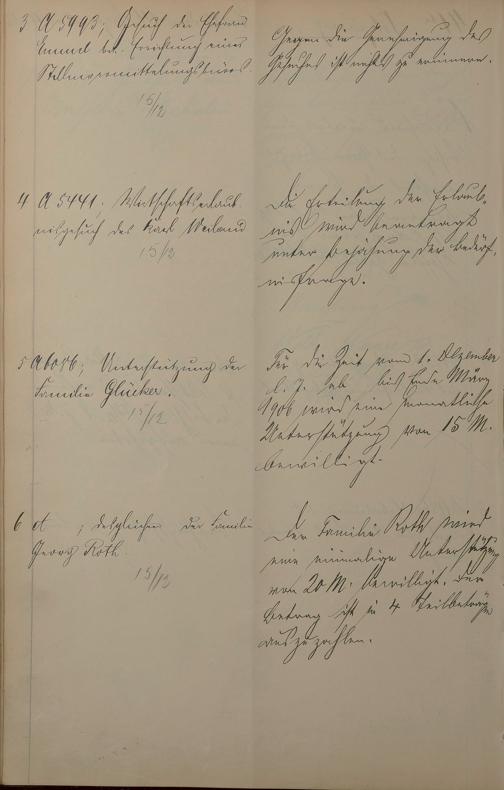 3 A 5993; Gesuch der Ehefrau
Emmel betr. Errichtung eines
Stellenvermittelungsbüros.
15/12
Gegen die Genehmigung des
Gesuches ist nichts zu erinnern.
4 A 5441; Wirtschaftserlaub-
nisgesuch des Karl Weiland
15/12
Die Erteilung der Erlaub-
nis wird beantragt
unter Bejahung der Bedürf-
nisfrage.
5 A 6016; Unterstützung der
Familie Glücker.
15/12
Für die Zeit vom 1. Dezember
d. J. ab bis Ende März
1906 wird eine monatliche
Unterstützung von 15 M.
bewilligt.
6 A ; desgleichen der Familie
Georg Roth.
15/12
Der Familie Roth wird
eine einmalige Unterstützung
von 20 M. bewilligt. Der
Betrag ist in 4 Teilbeträgen
auszuzahlen.